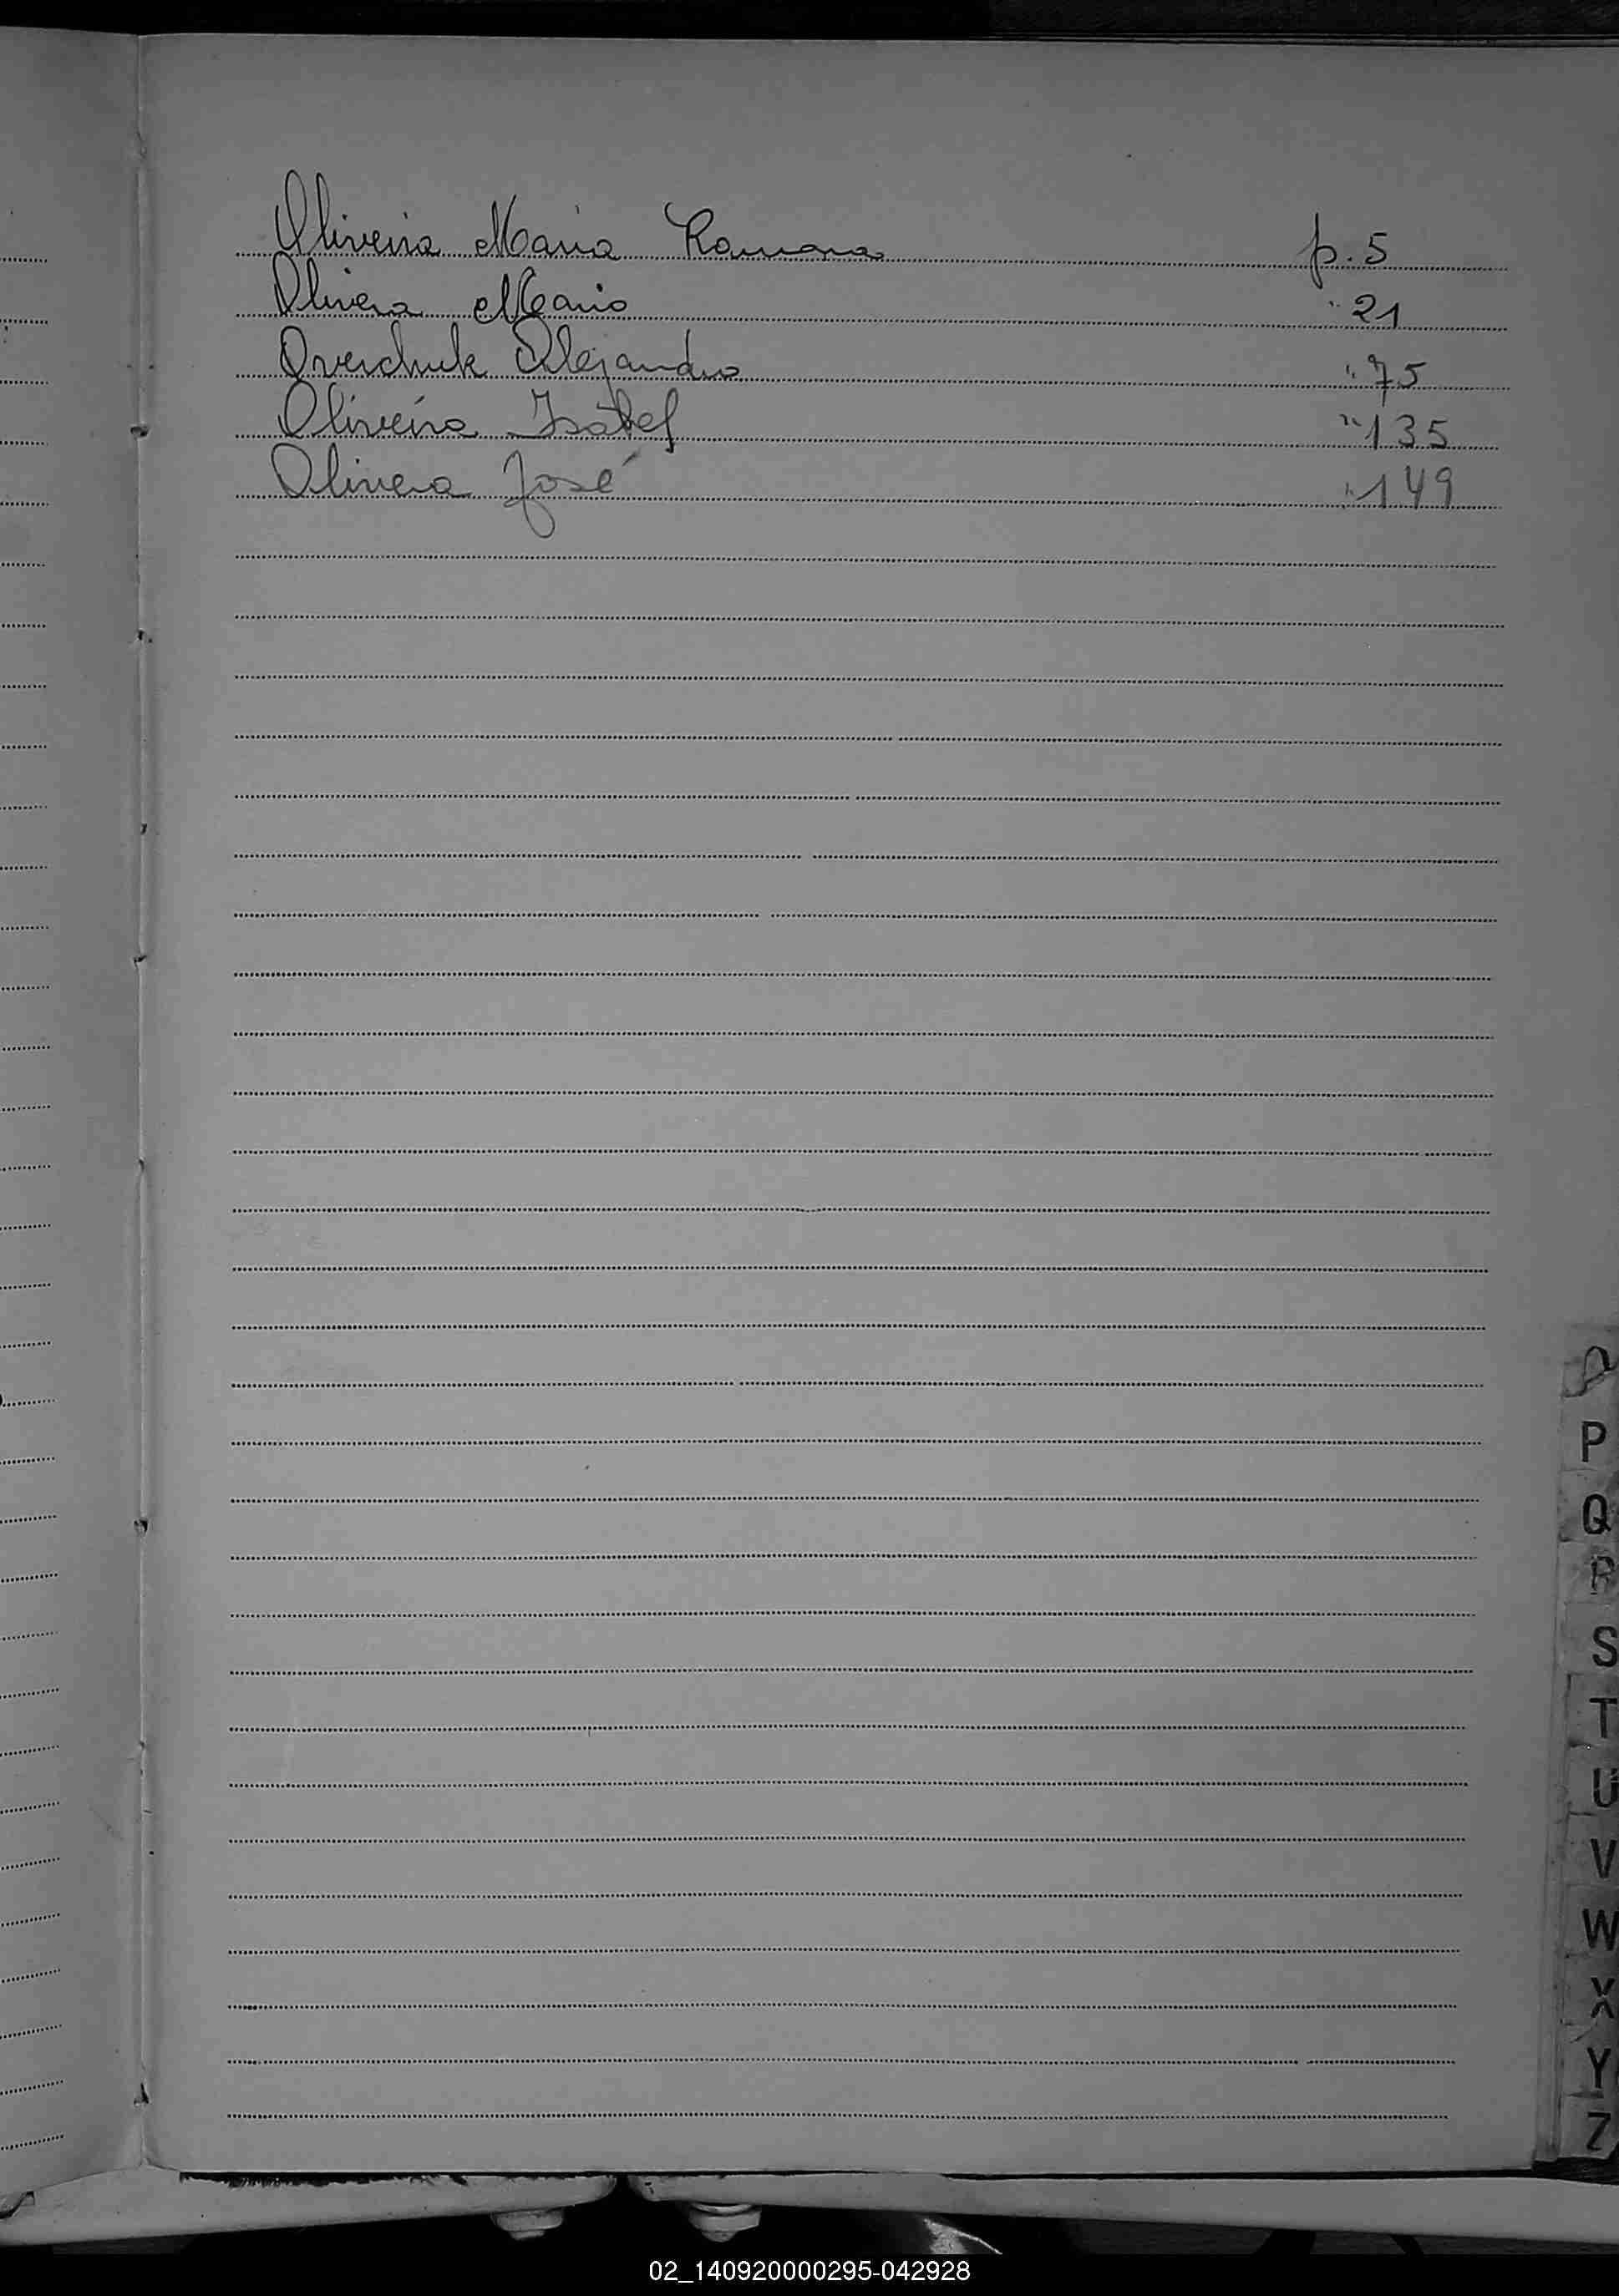 Oliveira Maria Ramona p. 5
Olivera Mario " 21
Overchuk Alejandro " 75
Oliveira Isabel " 135
Olivera José " 149
P
Q
R
S
T
U
V
W
X
Y
Z
02_140920000295-042928